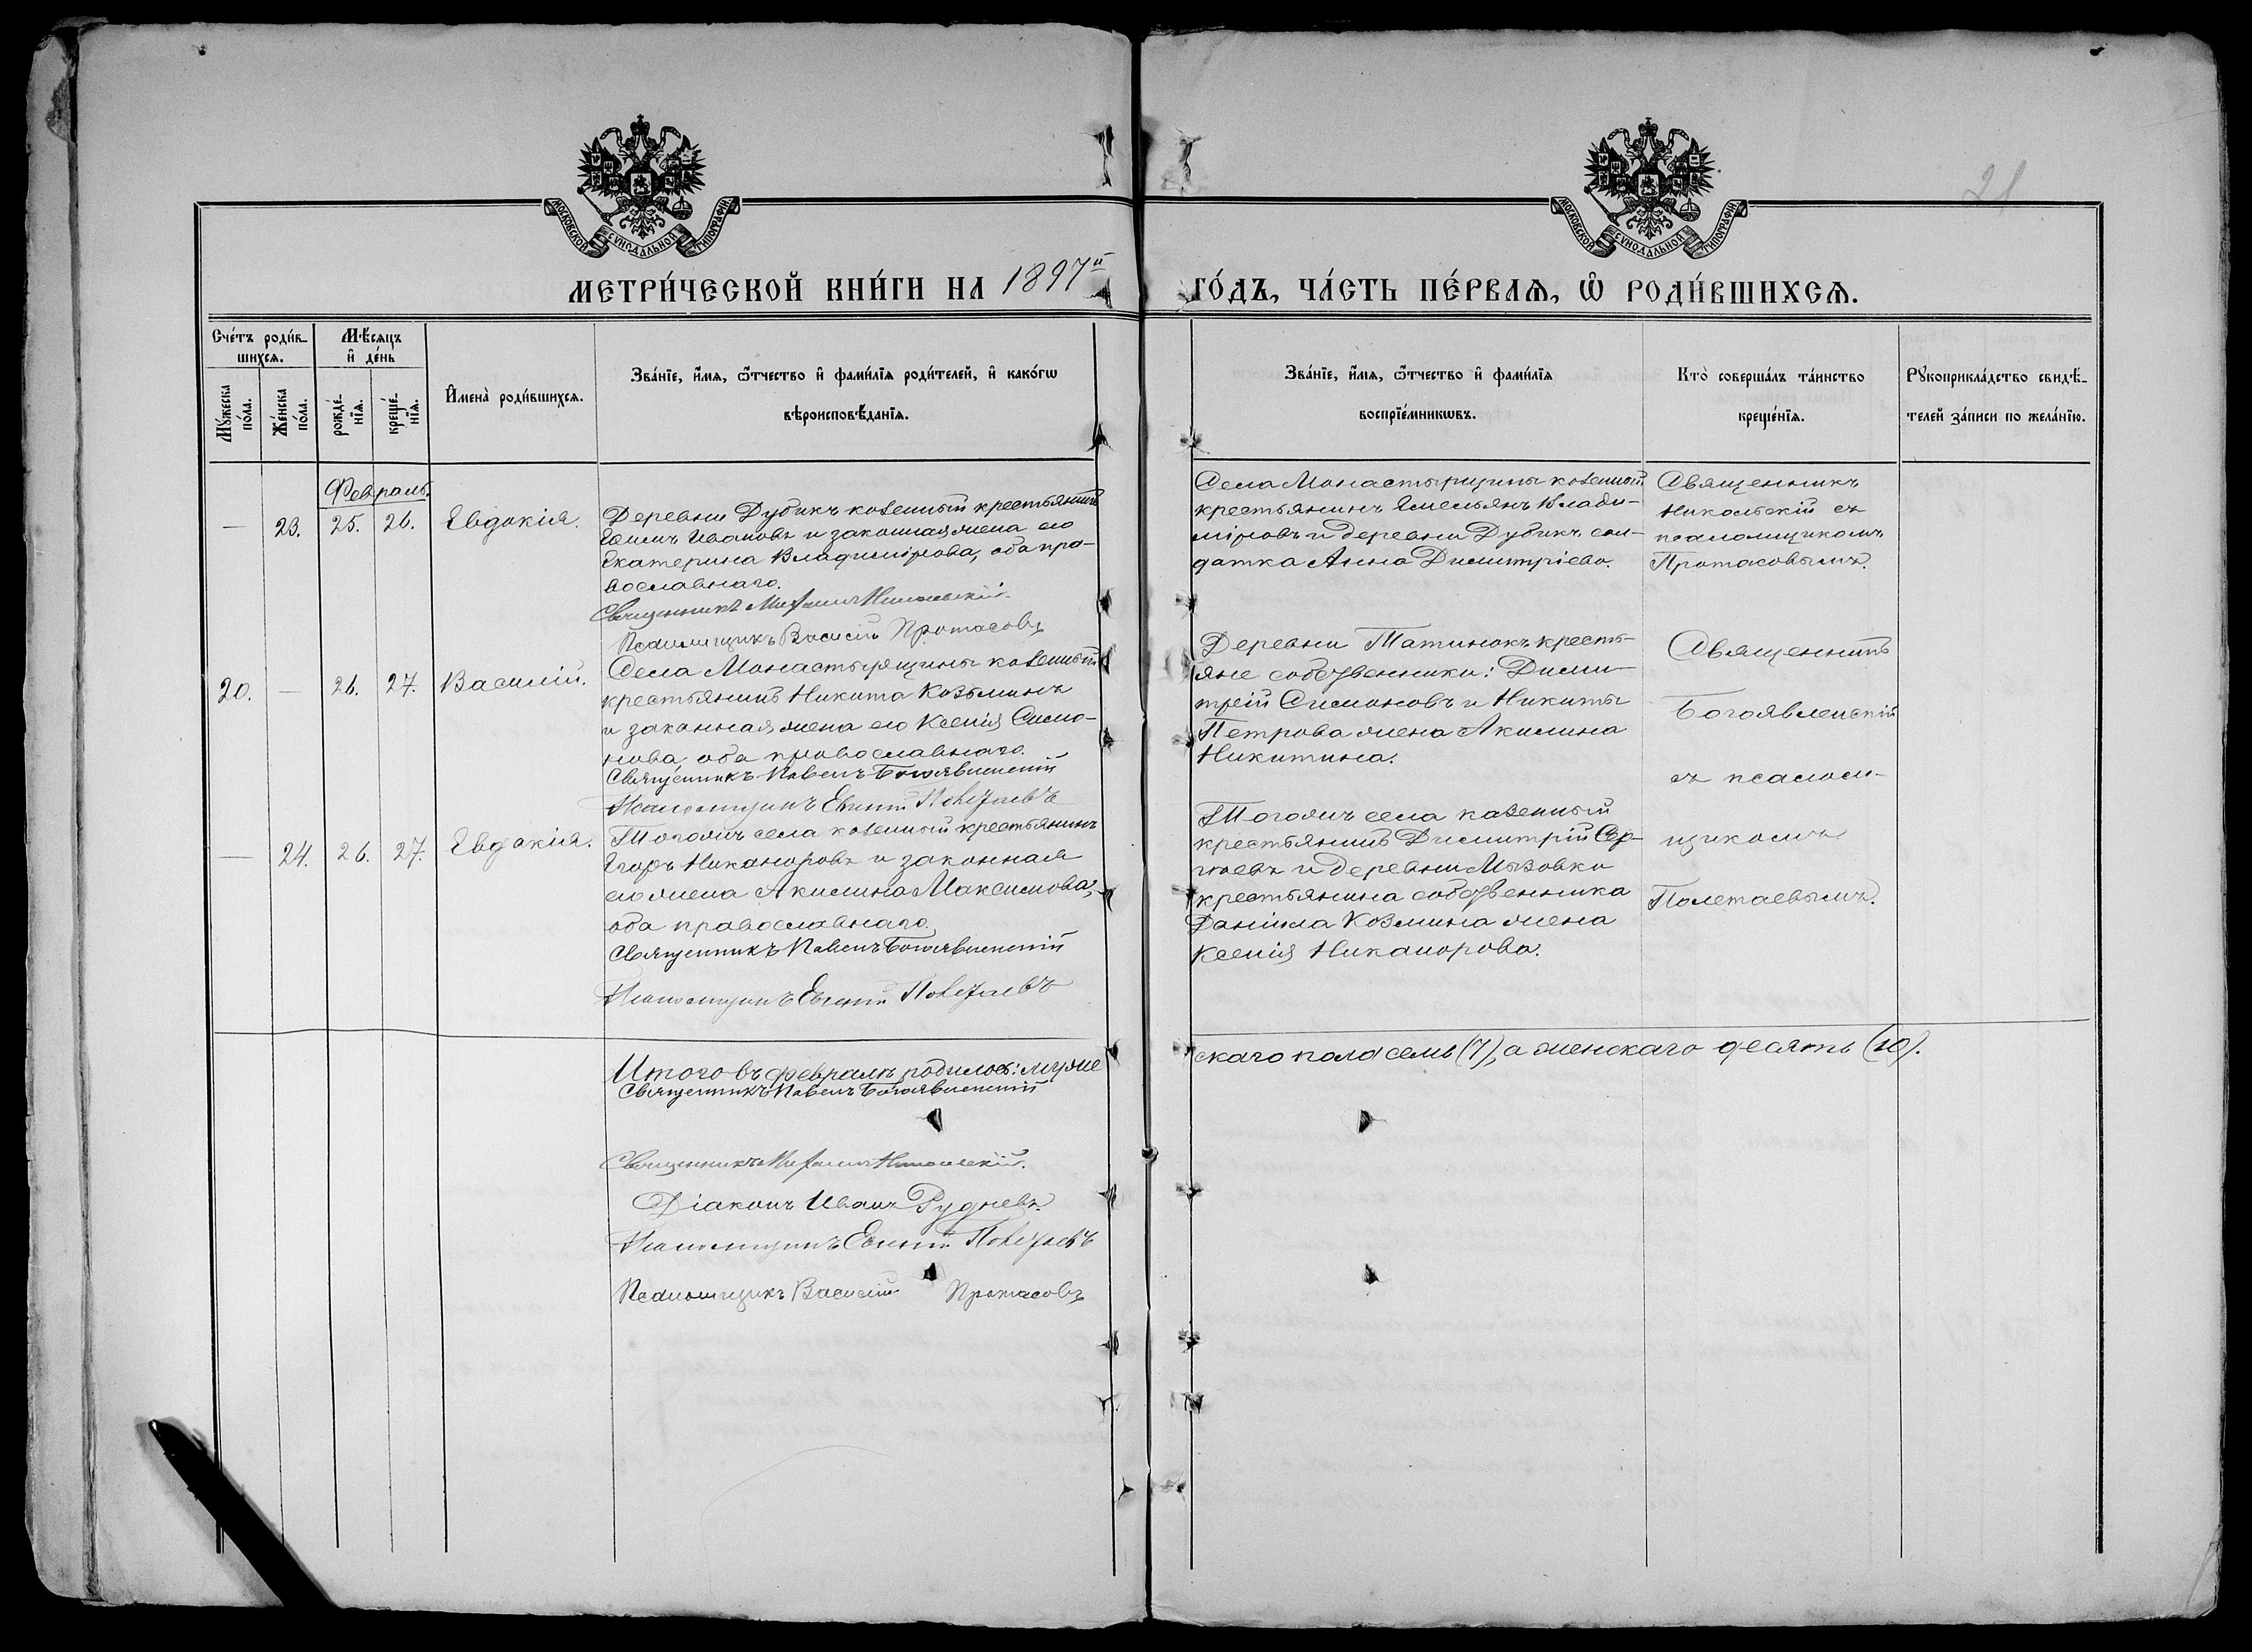 21
МОСКОВСКОЙ СѴНОДАЛЬНОЙ ТИПОГРАФІИ
МОСКОВСКОЙ СѴНОДАЛЬНОЙ ТИПОГРАФІИ
МЕТРИ́ЧЕСКОЙ КНИ́ГИ НА 1897й
ГО́ДЪ, ЧА́СТЬ ПЕ́РВАѦ, Ѽ РОДИ́ВШИХСѦ.
Сче́тъ роди́в-
шихсѧ.
Мꙋ́жеска по́ла.
Же́нска по́ла.
Мѣ́сѧцъ
и҆ де́нь
рожде́-нїѧ.
креще́-нїѧ.
И҆мена̀ роди́вшихсѧ.
Зва́нїе, и҆́мѧ, ѻ҆́тчество и҆ фами́лїѧ роди́телей, и҆ како́гѡ
вѣроисповѣ́данїѧ.
Зва́нїе, и҆́мѧ, ѻ҆́тчество и҆ фами́лїѧ
воспрїе́мникѡвъ.
Кто̀ соверша́лъ та́инство
креще́нїѧ.
Рꙋкоприкла́дство свидѣ́-
телей за́писи по жела́нїю.
Февраль.
— 23. 25. 26. Евдокія.
Деревни Дубикъ казенный крестьянинъ
Ивановъ и законная жена его
Екатерина Владимірова, оба пра-
вославнаго.
Священникъ Михаилъ Никольскій.
Псаломщикъ Василій Протасовъ
Села Монастырщины казенный
крестьянинъ Емельянъ Влади-
міровъ и деревни Дубикъ сол-
датка Анна Димитріева.
Священникъ
Никольскій съ
псаломщикомъ
Протасовымъ.
20. — 26. 27. Василій.
Села Монастырщины казенный
крестьянинъ Никита Козьминъ
и законная жена его Ксенія Симо-
нова, оба православнаго.
Священникъ Павелъ Богоявленскій
Псаломщикъ Евгеній Полетаевъ
Деревни Татинокъ кресть-
яне собственники: Дими-
трій Симоновъ и Никиты
Петрова жена Акилина
Никитина.
Священникъ
Богоявленскій
съ псалом-
щикомъ
Полетаевымъ.
— 24. 26. 27. Евдокія.
Тогожъ села казенный крестьянинъ
Егоръ Никаноровъ и законная
его жена Акилина Максимова,
оба православнаго.
Священникъ Павелъ Богоявленскій
Псаломщикъ Евгеній Полетаевъ
Тогожъ села казенный
крестьянинъ Димитрій Сер-
гѣевъ и деревни Мызовки
крестьянина собственника
Даніила Козмина жена
Ксенія Никанорова.
Итого въ февралѣ родилось: муже
скаго пола семь (7), а женскаго десять (10).
Священникъ Павелъ Богоявленскій
Священникъ Михаилъ Никольскій.
Діаконъ Иванъ Рудневъ.
Псаломщикъ Евгеній Полетаевъ
Псаломщикъ Василій Протасовъ